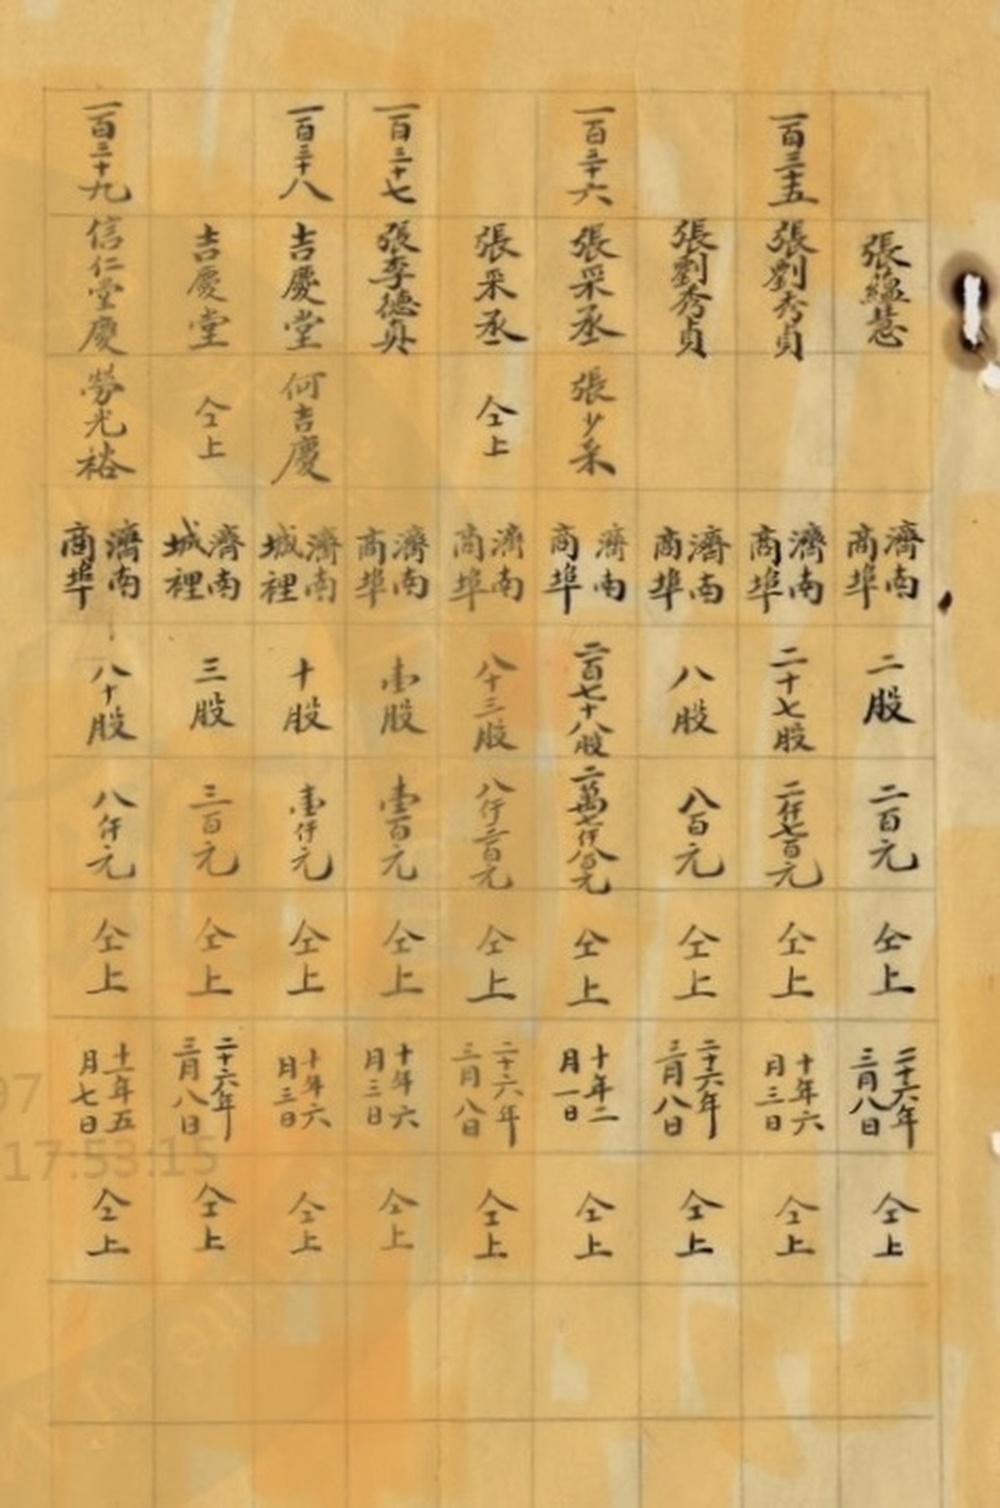 張蘊慧 濟南商埠 二股 二百元 仝上 二十六年三月八日 仝上
一百三十五 張劉秀貞 濟南商埠 二十七股 二仟七百元 仝上 十年六月三日 仝上
張劉秀貞 濟南商埠 八股 八百元 仝上 二十六年三月八日 仝上
一百三十六 張采丞 張少采 濟南商埠 二百七十八股 二萬七仟八百元 仝上 十年二月一日 仝上
張采丞 仝上 濟南商埠 八十三股 八仟三百元 仝上 二十六年三月八日 仝上
一百三十七 張李德貞 濟南商埠 壹股 壹百元 仝上 十年六月三日 仝上
一百三十八 吉慶堂 何吉慶 濟南城裡 十股 壹仟元 仝上 十年六月三日 仝上
吉慶堂 仝上 濟南城裡 三股 三百元 仝上 二十六年三月八日 仝上
一百三十九 信仁堂慶 勞光裕 濟南商埠 八十股 八仟元 仝上 十一年五月七日 仝上
17:53:15